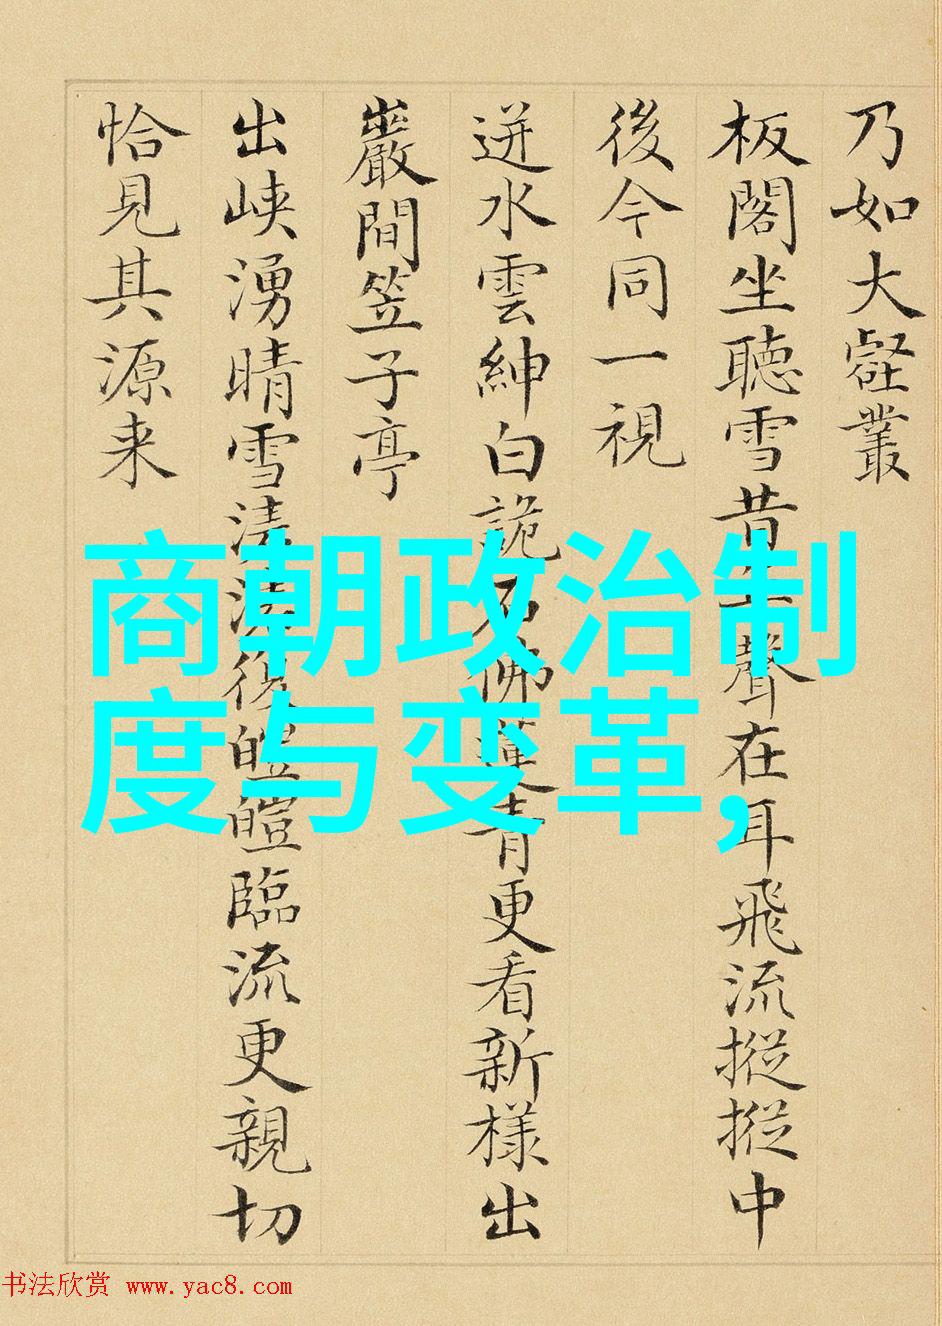 乃如大壑叢
板閣坐聽雪昔聲在耳飛流摐摐中
後今同一視
迸水雲紳白詭石佛蓮青更看新樣出
巖間笠子亭
出峽湧晴雪清復皚皚臨流更親切
恰見其源来
商朝政治制
度与变革,
书法欣赏 www.yac8.com